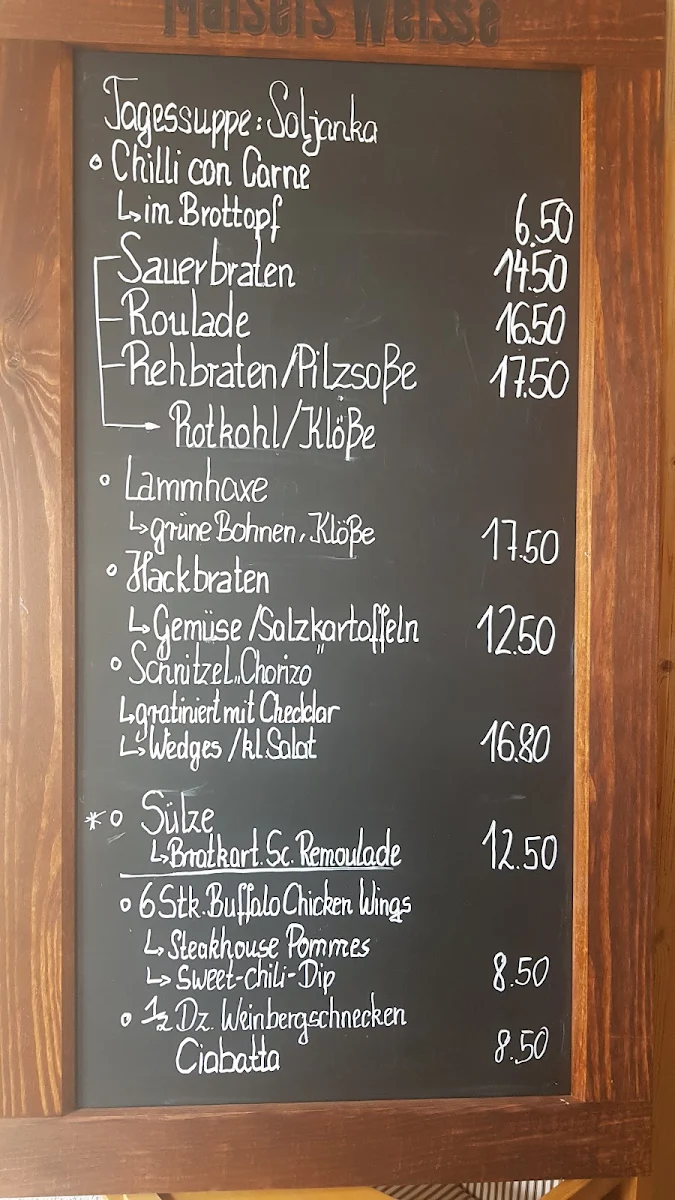 Maisel's Weisse
Tagessuppe: Soljanka
Chilli con Carne
↳ im Brottopf 6.50
Sauerbraten 14.50
Roulade 16.50
Rehbraten/Pilzsoße 17.50
Rotkohl/Klöße
Lammhaxe
↳ grüne Bohnen, Klöße 17.50
Hackbraten
↳ Gemüse/Salzkartoffeln 12.50
Schnitzel „Chorizo"
↳ gratiniert mit Cheddar
↳ Wedges/kl. Salat 16.80
* Sülze
↳ Bratkart. Sc. Remoulade 12.50
6 Stk. Buffalo Chicken Wings
↳ Steakhouse Pommes
↳ Sweet-Chili-Dip 8.50
1/2 Dz. Weinbergschnecken
Ciabatta 8.50